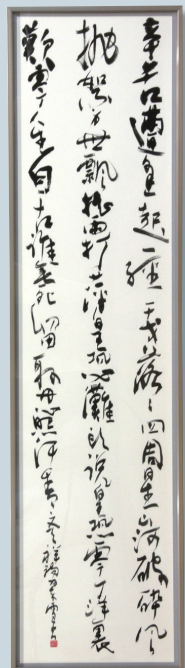 辛苦遭逢起一經干戈落々四周星山河破碎風
拋絮身世飄搖雨打萍皇恐灘頭說皇恐零丁洋裏
歎零丁人生自古誰無死留取丹心照汗青